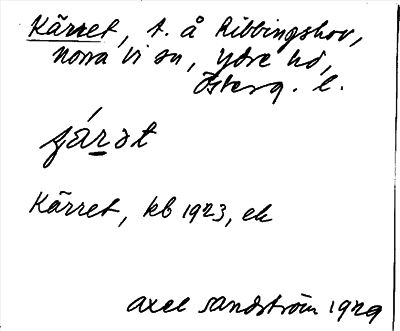 Kärret, t. å Ribbingshov,
Norra Vi sn, Ydre hd,
Österg. l.
Kärret, kb 1923, ek
Axel Sandström 1929